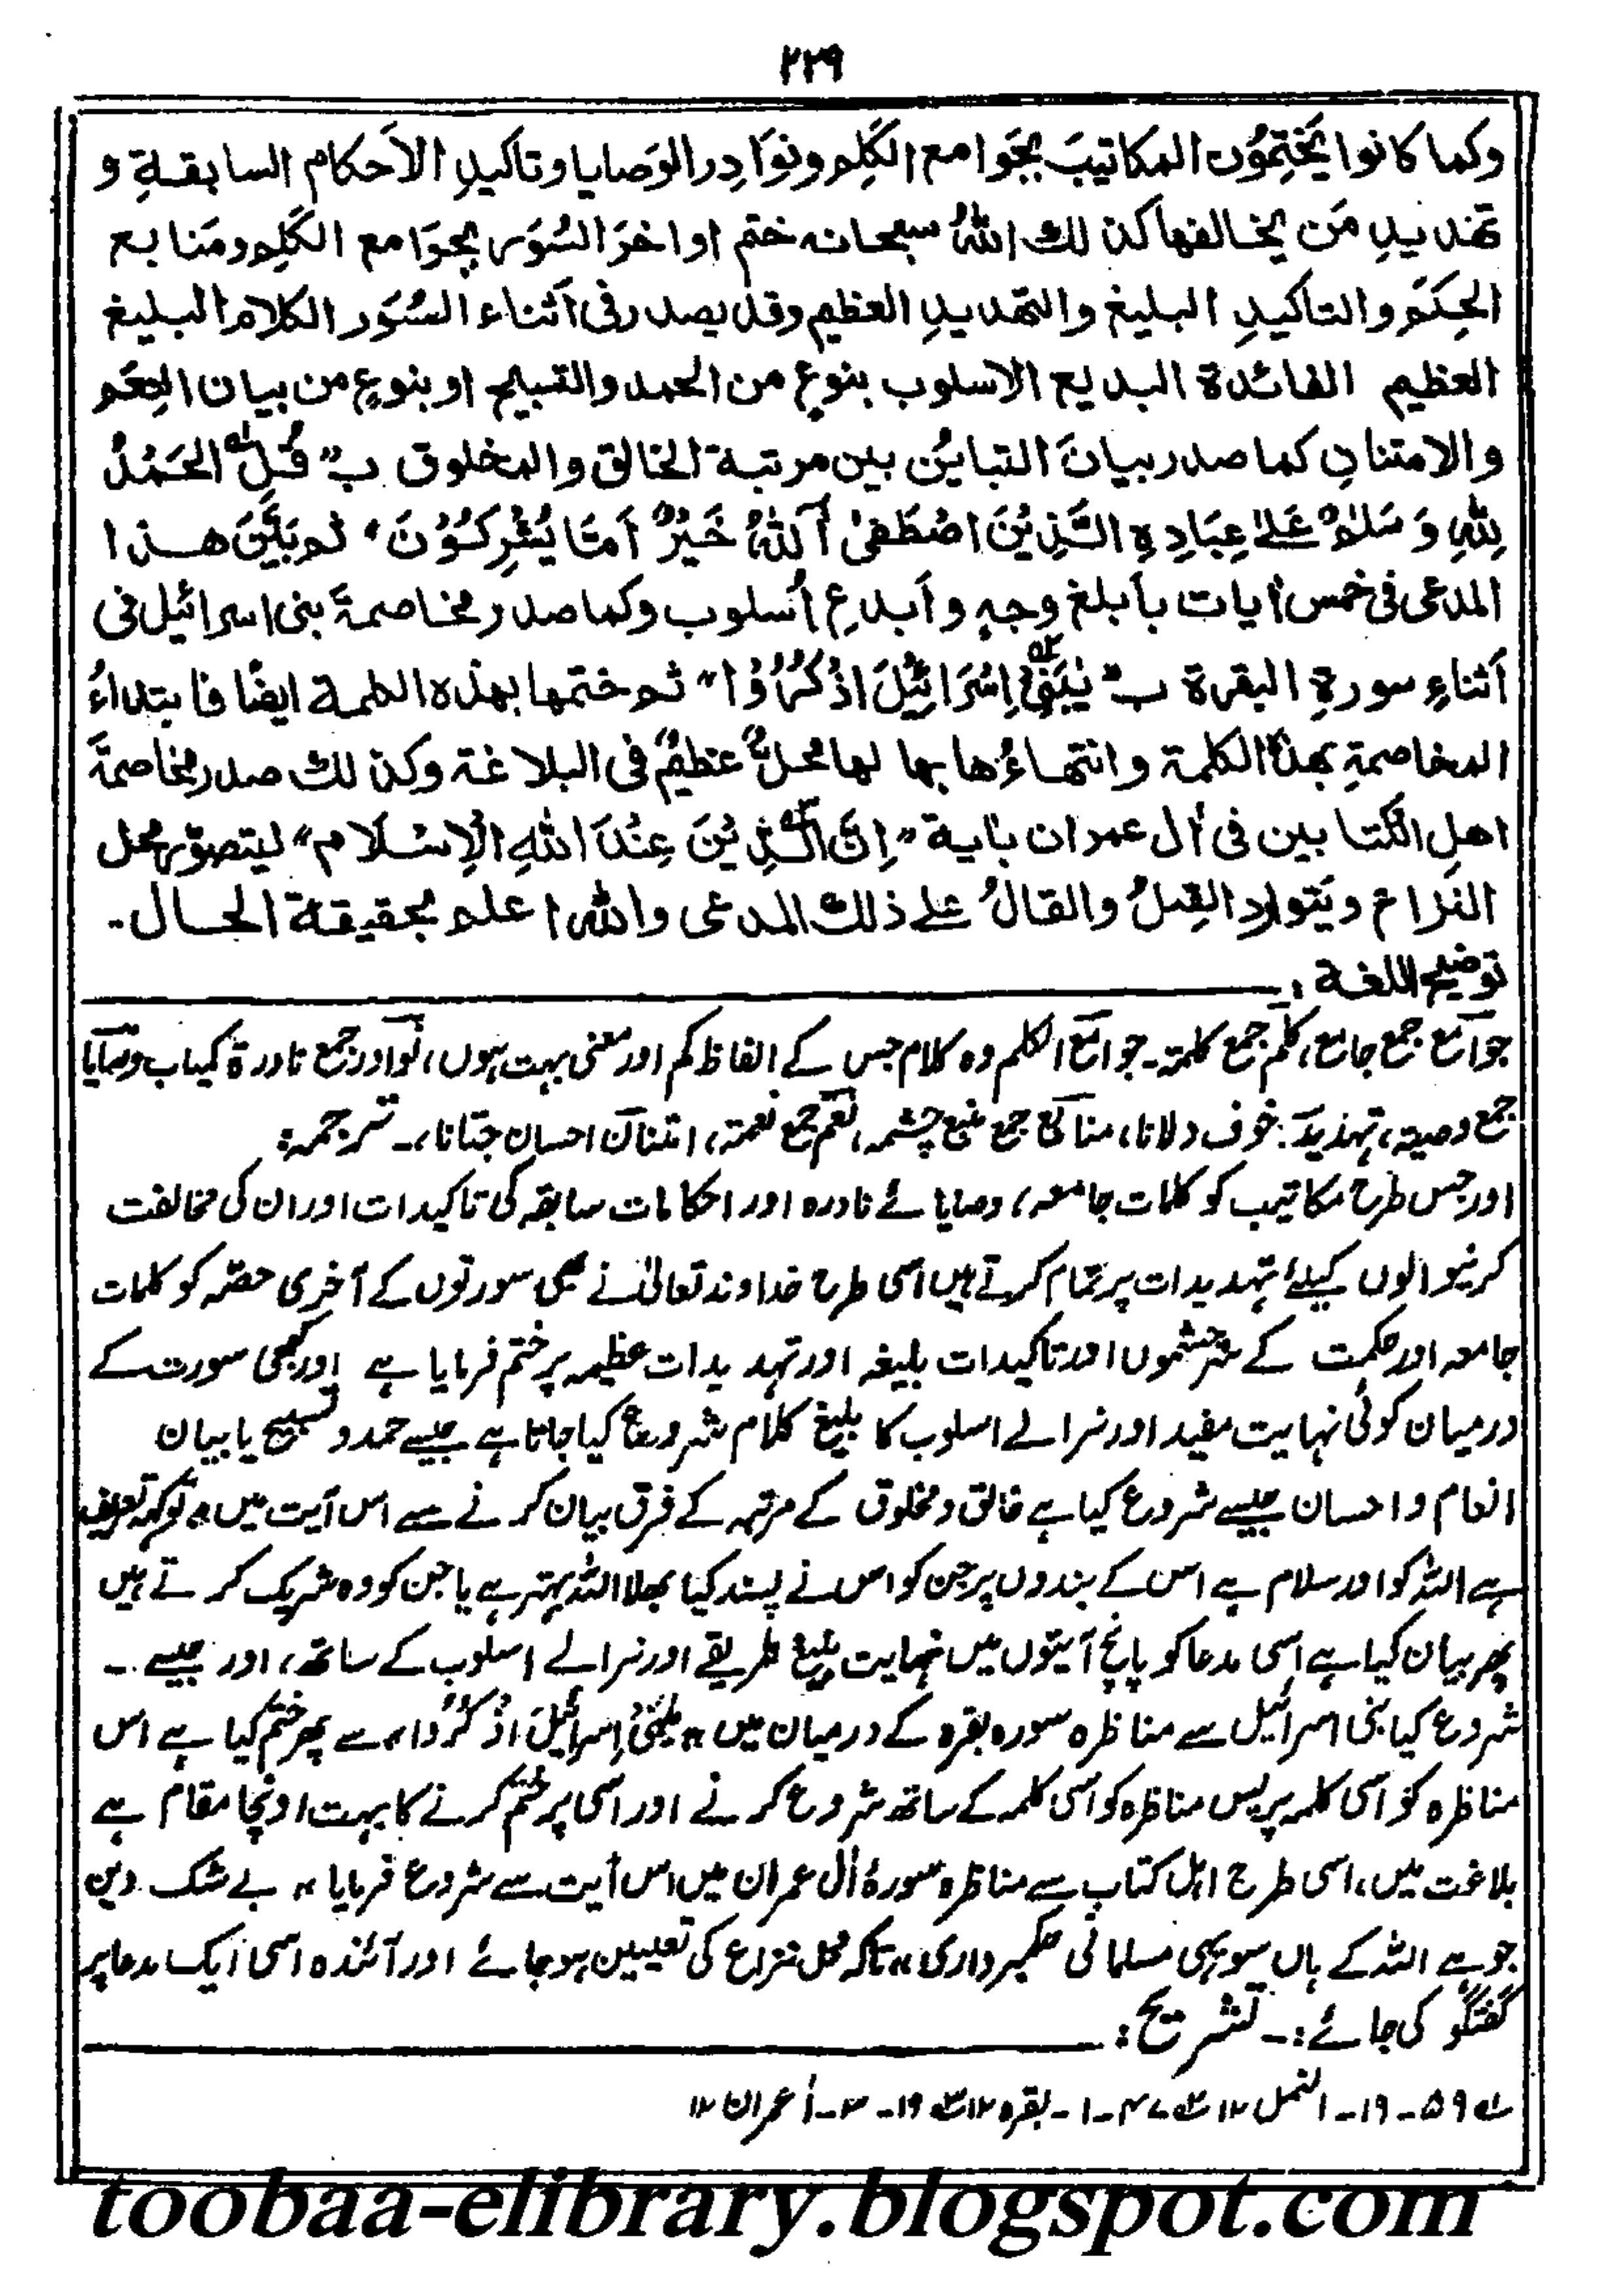 ۲۲۹
وکما کانوا یَختِمُوْن المکاتیبَ بجَوامع الکَلِم ونوَادِر الوَصایا وتاکیدِ الأحکام السابقةِ و
تهدیدِ مَن یخالفها کذلك اللهُ سبحانه ختم اواخرَ السُّوَرِ بجوَامع الکَلِم ومَنابع
الحِکَم والتاکیدِ البلیغ والتهدیدِ العظیم وقد یصدر فی أثناء السُّوَر الکلام البلیغ
العظیم الفائدة البدیع الاسلوب بنوعٍ من الحمد والتسبیح او بنوعٍ من بیان النِعَم
والامتنانِ کما صدر بیانَ التبایُن بین مرتبة الخالق والمخلوق ب" قُلِ الْحَمْدُ
لِلّٰهِ وَ سَلَامٌ عَلٰی عِبَادِهِ الَّذِیْنَ اصْطَفٰی آللّٰهُ خَیْرٌ اَمَّا یُشْرِکُوْنَ" ثم بَیَّنَ هذا
المدعی فی خمس اٰیات بأبلغ وجهٍ وأبدعِ أسلوب وکما صدر مخاصمةَ بنی اسرائیل فی
أثناءِ سورةِ البقرة ب" یٰبَنِیْ اِسْرَائِیْلَ اذْکُرُوْا" ثم ختمها بهذه الکلمة ایضًا فابتداءُ
المخاصمةِ بهذه الکلمة وانتهاءُها بها لها محلٌّ عظیمٌ فی البلاغة وکذلك صدر مخاصمةَ
اهلِ الکتابین فی اٰل عمران باٰیة "اِنَّ الدِّیْنَ عِنْدَ اللهِ الْاِسْلَام" لیتصوّر محل
النزاع ویتوارد القِیلُ والقالُ علی ذلك المدعی والله اعلم بحقیقة الحال۔
توضیح اللغة :
جوامع جمع جامع، کلم جمع کلمۃ۔ جوامع الکلم وہ کلام جس کے الفاظ کم اور معنی بہت ہوں، نوادر جمع نادرۃ کمیاب وصایا
جمع وصیۃ، تہدید: خوف دلانا، منابع جمع منبع چشمہ، نعم جمع نعمۃ، امتنان احسان جتانا،۔ ترجمہ:
اور جس طرح مکاتیب کو کلمات جامعہ، وصایائے نادرہ اور احکامات سابقہ کی تاکیدات اور ان کی مخالفت
کرنیوالوں کیلئے تہدیدات پر تمام کرتے ہیں اسی طرح خداوند تعالیٰ نے بھی سورتوں کے آخری حصّہ کو کلمات
جامعہ اور حکمت کے سرچشموں اور تاکیدات بلیغہ اور تہدیدات عظیمہ پر ختم فرمایا ہے اور کبھی سورت کے
درمیان کوئی نہایت مفید اور نرالے اسلوب کا بلیغ کلام شروع کیا جاتا ہے جیسے حمد و تسبیح یا بیان
انعام و احسان جیسے شروع کیا ہے خالق و مخلوق کے مرتبہ کے فرق بیان کرنے سے اس آیت میں "تو کہہ تعریف
ہے اللہ کو اور سلام ہے اس کے بندوں پر جن کو اس نے پسند کیا بھلا اللہ بہتر ہے یا جن کو وہ شریک کرتے ہیں
پھر بیان کیا ہے اسی مدعا کو پانچ آیتوں میں نہایت بلیغ طریقے اور نرالے اسلوب کے ساتھ، اور جیسے ۔
شروع کیا بنی اسرائیل سے مناظرہ سورہ بقرہ کے درمیان میں "یٰبَنِیْ اِسرائیلَ اذْکُرُوا" سے پھر ختم کیا ہے اس
مناظرہ کو اسی کلمہ پر پس مناظرہ کو اسی کلمہ کے ساتھ شروع کرنے اور اسی پر ختم کرنے کا بہت اونچا مقام ہے
بلاغت میں، اسی طرح اہل کتاب سے مناظرہ سورۂ اٰل عمران میں اس آیت سے شروع فرمایا " بے شک دین
جو ہے اللہ کے ہاں سو یہی مسلمانی حکمبرداری" تاکہ محل نزاع کی تعیین ہوجائے اور آئندہ اسی ایک مدعا پر
گفتگو کی جائے:۔ تشریح :
۵۹ ۔ ۱۹ ۔ النمل ۱۲ ۴۷ ۔ ۱ ۔ بقرہ ۱۲ ۱۹ ۔ ۳ ۔ اٰعمران ۱۲
toobaa-elibrary.blogspot.com